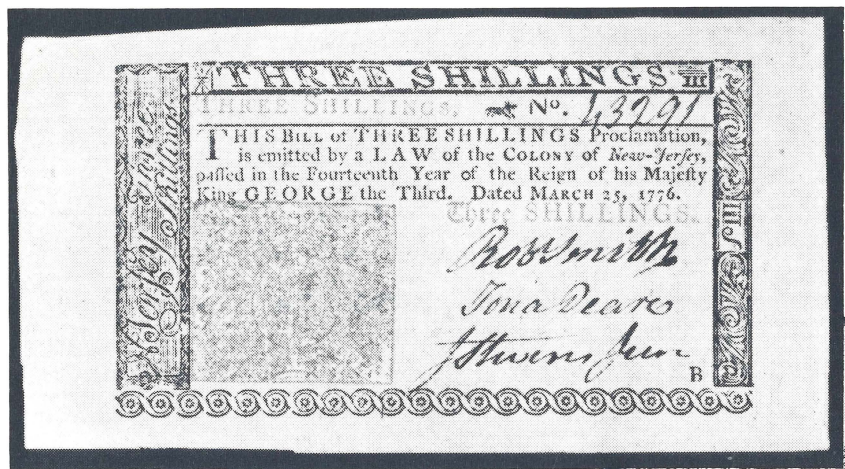 THREE SHILLINGS III
THREE SHILLINGS. No. 43291
THIS BILL of THREE SHILLINGS Proclamation,
is emitted by a LAW of the COLONY of New-Jersey,
passed in the Fourteenth Year of the Reign of his Majesty
King GEORGE the Third. Dated MARCH 25, 1776.
Three SHILLINGS.
Robt Smith
Jona Deare
J Stevens Jun
B
N. Jersey Three Shillings
III S